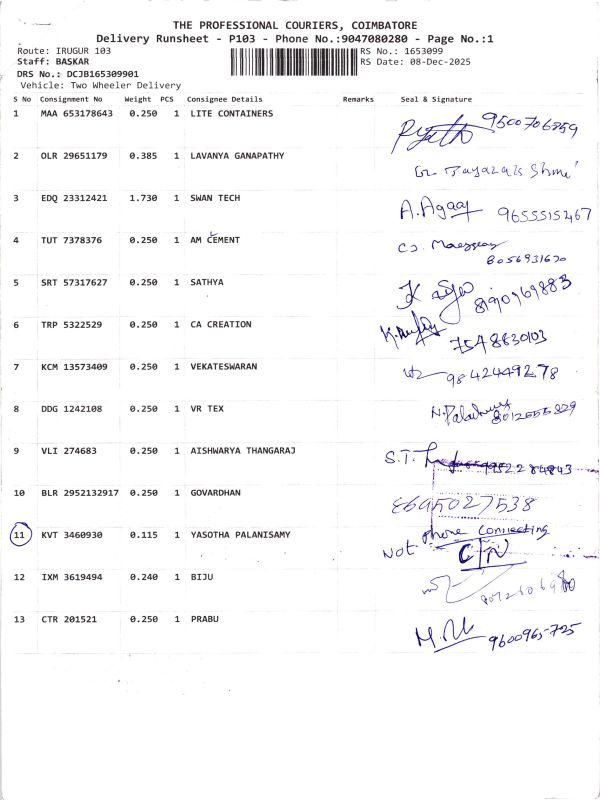 THE PROFESSIONAL COURIERS, COIMBATORE
Delivery Runsheet - P103 - Phone No.:9047080280 - Page No.:1
Route: IRUGUR 103
RS No.: 1653099
Staff: BASKAR
RS Date: 08-Dec-2025
DRS No.: DCJB165309901
Vehicle: Two Wheeler Delivery
S No Consignment No Weight PCS Consignee Details Remarks Seal & Signature
1 MAA 653178643 0.250 1 LITE CONTAINERS
2 OLR 29651179 0.385 1 LAVANYA GANAPATHY
3 EDQ 23312421 1.730 1 SWAN TECH A.Agaaj 9655515267
4 TUT 7378376 0.250 1 AM CEMENT
8056931620
5 SRT 57317627 0.250 1 SATHYA
6 TRP 5322529 0.250 1 CA CREATION 7548830103
7 KCM 13573409 0.250 1 VEKATESWARAN 9842449278
8 DDG 1242108 0.250 1 VR TEX
9 VLI 274683 0.250 1 AISHWARYA THANGARAJ S.T.
10 BLR 2952132917 0.250 1 GOVARDHAN 8695027538
11 KVT 3460930 0.115 1 YASOTHA PALANISAMY Not phone connecting
12 IXM 3619494 0.240 1 BIJU
13 CTR 201521 0.250 1 PRABU 9600965725